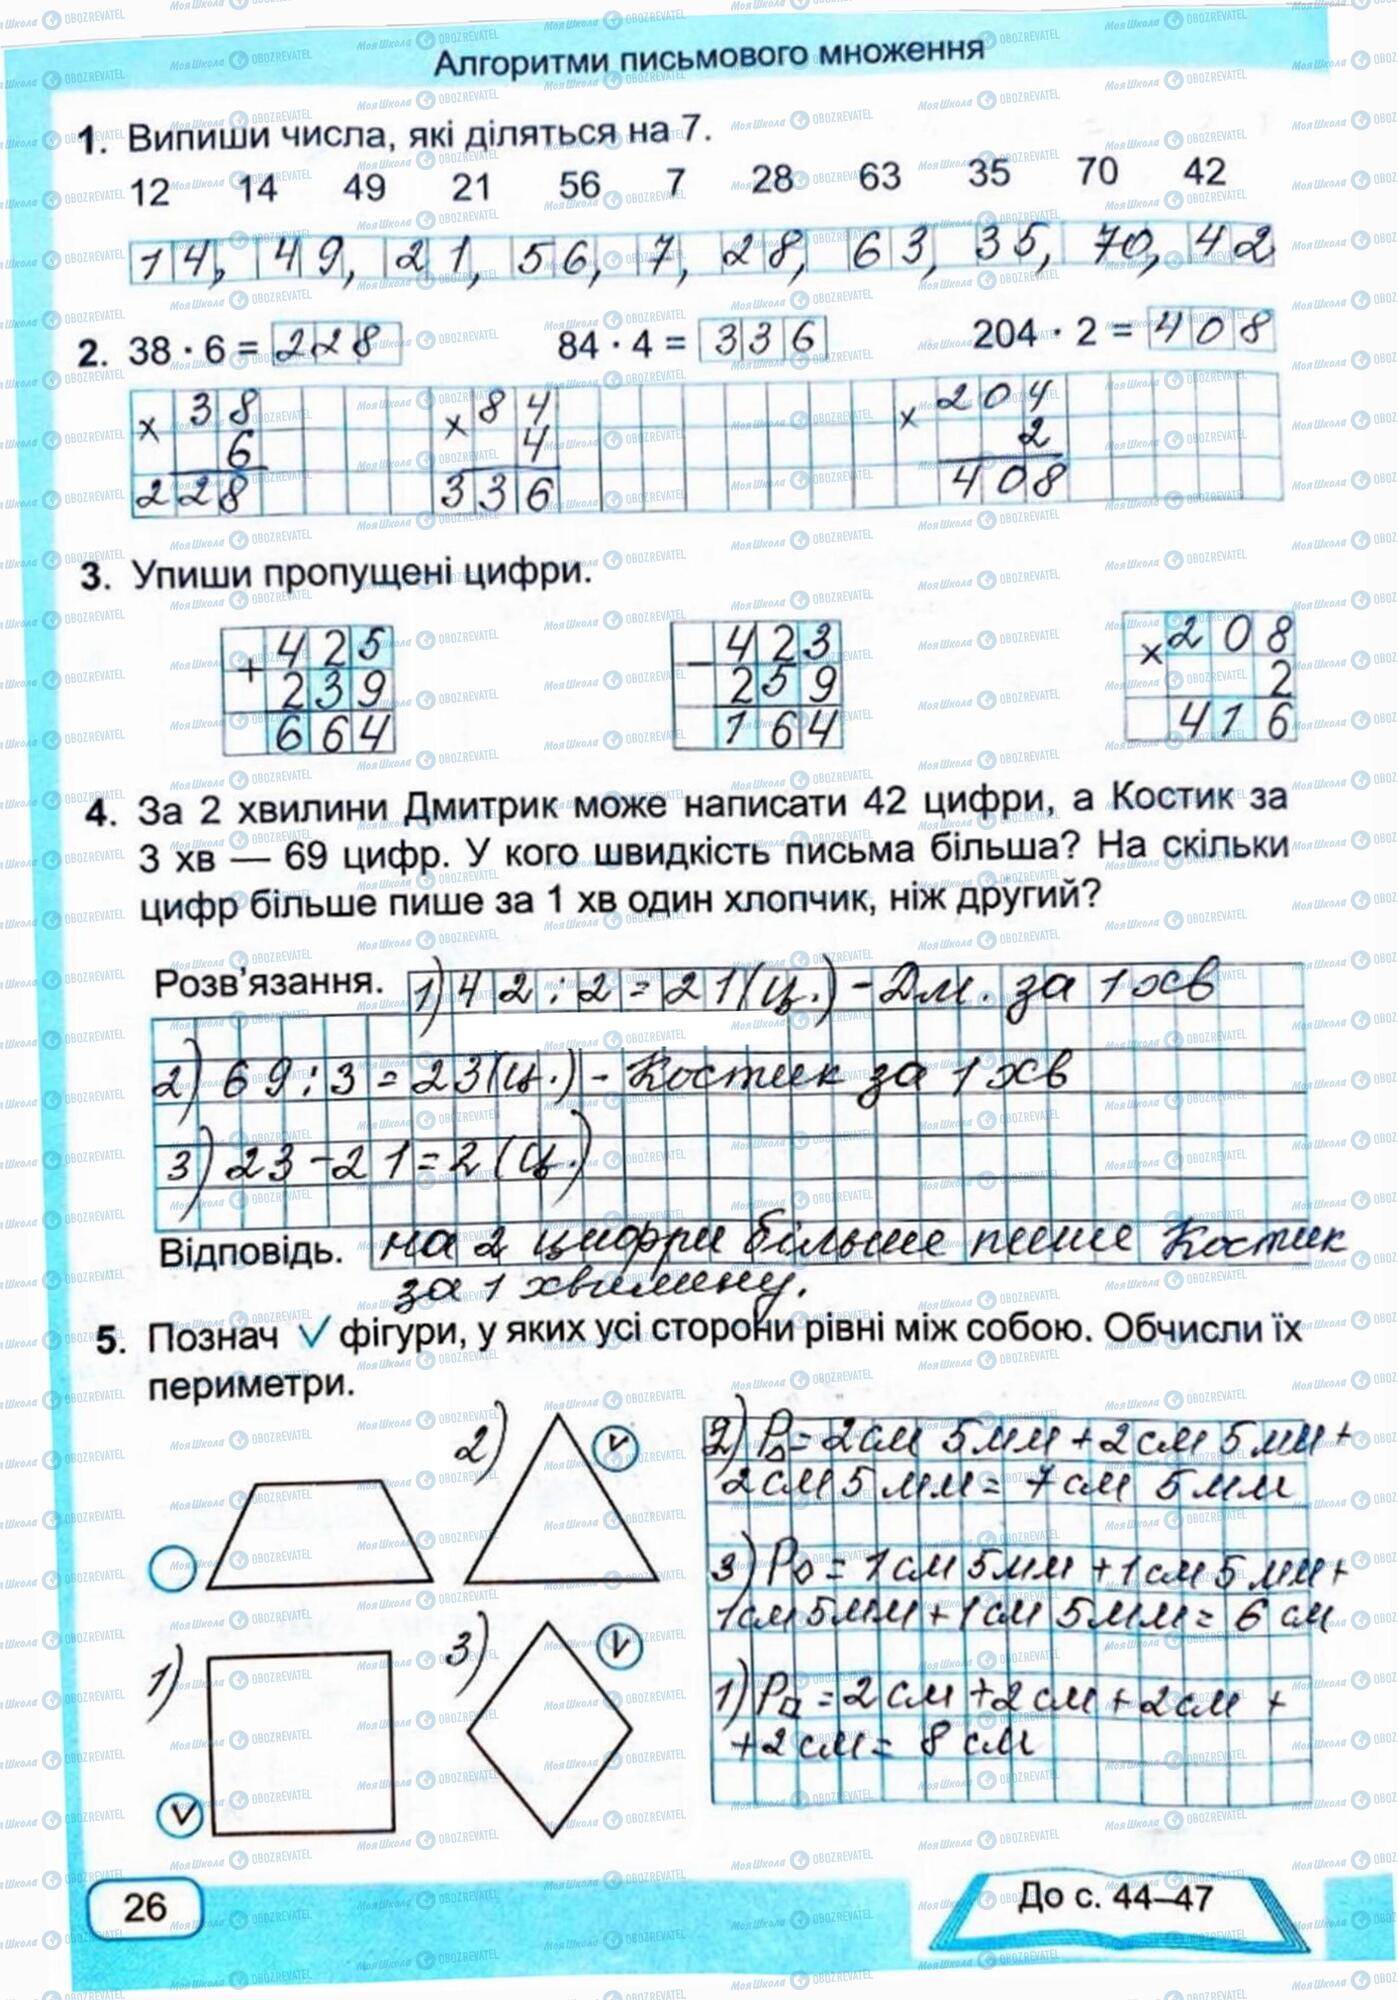 Алгоритми письмового множення
1. Випиши числа, які діляться на 7.
12 14 49 21 56 7 28 63 35 70 42
14, 49, 21, 56, 7, 28, 63, 35, 70, 42
2. 38 · 6 = 228 84 · 4 = 336 204 · 2 = 408
× 38 × 84 × 204
6 4 2
228 336 408
3. Упиши пропущені цифри.
+ 425 − 423 × 208
239 259 2
664 164 416
4. За 2 хвилини Дмитрик може написати 42 цифри, а Костик за
3 хв — 69 цифр. У кого швидкість письма більша? На скільки
цифр більше пише за 1 хв один хлопчик, ніж другий?
Розв'язання. 1) 42 : 2 = 21 (ц.) - Дм. за 1 хв
2) 69 : 3 = 23 (ц.) - Костик за 1 хв
3) 23 - 21 = 2 (ц.)
Відповідь. на 2 цифри більше пише Костик
за 1 хвилину.
5. Познач √ фігури, у яких усі сторони рівні між собою. Обчисли їх
периметри.
2)
3)
1)
2) P△ = 2 см 5 мм + 2 см 5 мм +
2 см 5 мм = 7 см 5 мм
3) P◇ = 1 см 5 мм + 1 см 5 мм +
1 см 5 мм + 1 см 5 мм = 6 см
1) P□ = 2 см + 2 см + 2 см +
+ 2 см = 8 см
26
До с. 44–47
Моя Школа OBOZREVATEL